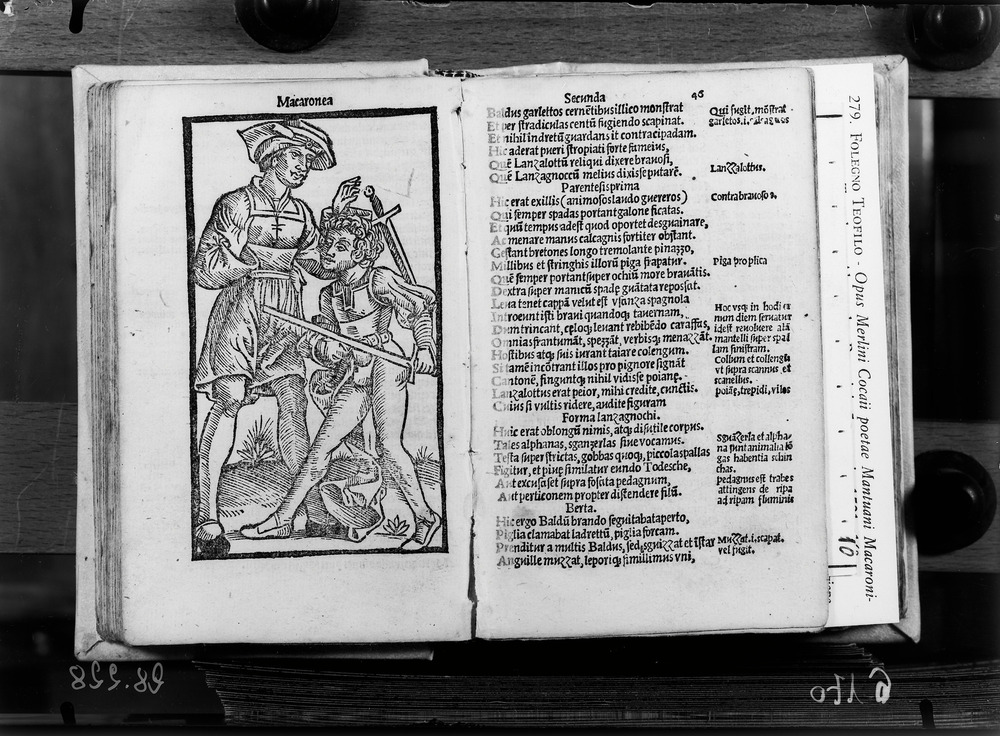 Macaronea
Secunda
46
Baldus garlettos cernētibus illico monstrat
Et per stradiculas centū fugiendo scapinat.
Et nihil indretū guardans it contra cipadam.
Hic aderat pueri stropiati forte fameius,
Quē Lanzalottū reliqui dixere brauosi,
Quē Lanzagnoccū melius dixisse putarē.
Parentesis prima
Hic erat ex illis (animosos laudo guereros)
Qui semper spadas portant galone ficatas.
Et quū tempus adest quod oportet desguainare,
Ac menare manus calcagnis fortiter obstant.
Gestant bretones longo tremolante pinazzo,
Millibus et stringhis illorū piga frapatur.
Quē semper portant super ochiū more brauātis.
Dextra super manicū spadę guātata reposat.
Leua tenet cappā velut est vsanza spagnola
Introeunt isti braui quandoqȝ tauernam,
Dum trincant, cęloqȝ leuant rebibēdo caraffas,
Omnia sfrantumāt, spezzāt, verbisqȝ menazzāt.
Hostibus atqȝ suis iurant taiare colengum.
Si tamē incōtrant illos pro pignore signāt
Cantonē, finguntqȝ nihil vidisse poianę.
Lanzalottus erat peior, mihi credite, cunctis.
Cuius si vultis ridere, audite figuram
Forma lanzagnochi.
Huic erat oblongū nimis, atqȝ disutile corpus.
Tales alphanas, sganzerlas siue vocamus.
Testa super strictas, gobbas quoqȝ, piccola spallas
Figitur, et piuę similatur eundo Todesche,
Aut excusasset supra fossata pedagnum,
Aut perticonem propter distendere filū.
Berta.
Hic ergo Baldū brando seguitabat aperto,
Piglia clamabat ladrettū, piglia forcam.
Prenditur a multis Baldus, sed sguizzat et istar
Anguille muzzat, leporiqȝ simillimus vni,
Qui fugit, mōstrat
garletos .i. calcagnos
Lanzzalottus.
Contra brauosos.
Piga pro plica
Hoc vsqȝ in hodiernum
num diem seruatur
idest reuoluere alā
mantelli super spallam
lam sinistram.
Collum et collengū
vt supra scannus, et
scanellus.
poianę, trepidi, viles
Sguāzerla et alphana
na sunt animalia lōgas
gas habentia schinchas.
chas.
pedagnus est trabes
attingens de ripa
ad ripam fluminis
Muzzat .i. scapat.
vel fugit.
279. Folegno Teofilo - Opus Merlini Cocaii poetae Mantuani Macaroni-
10
28.228
6 170